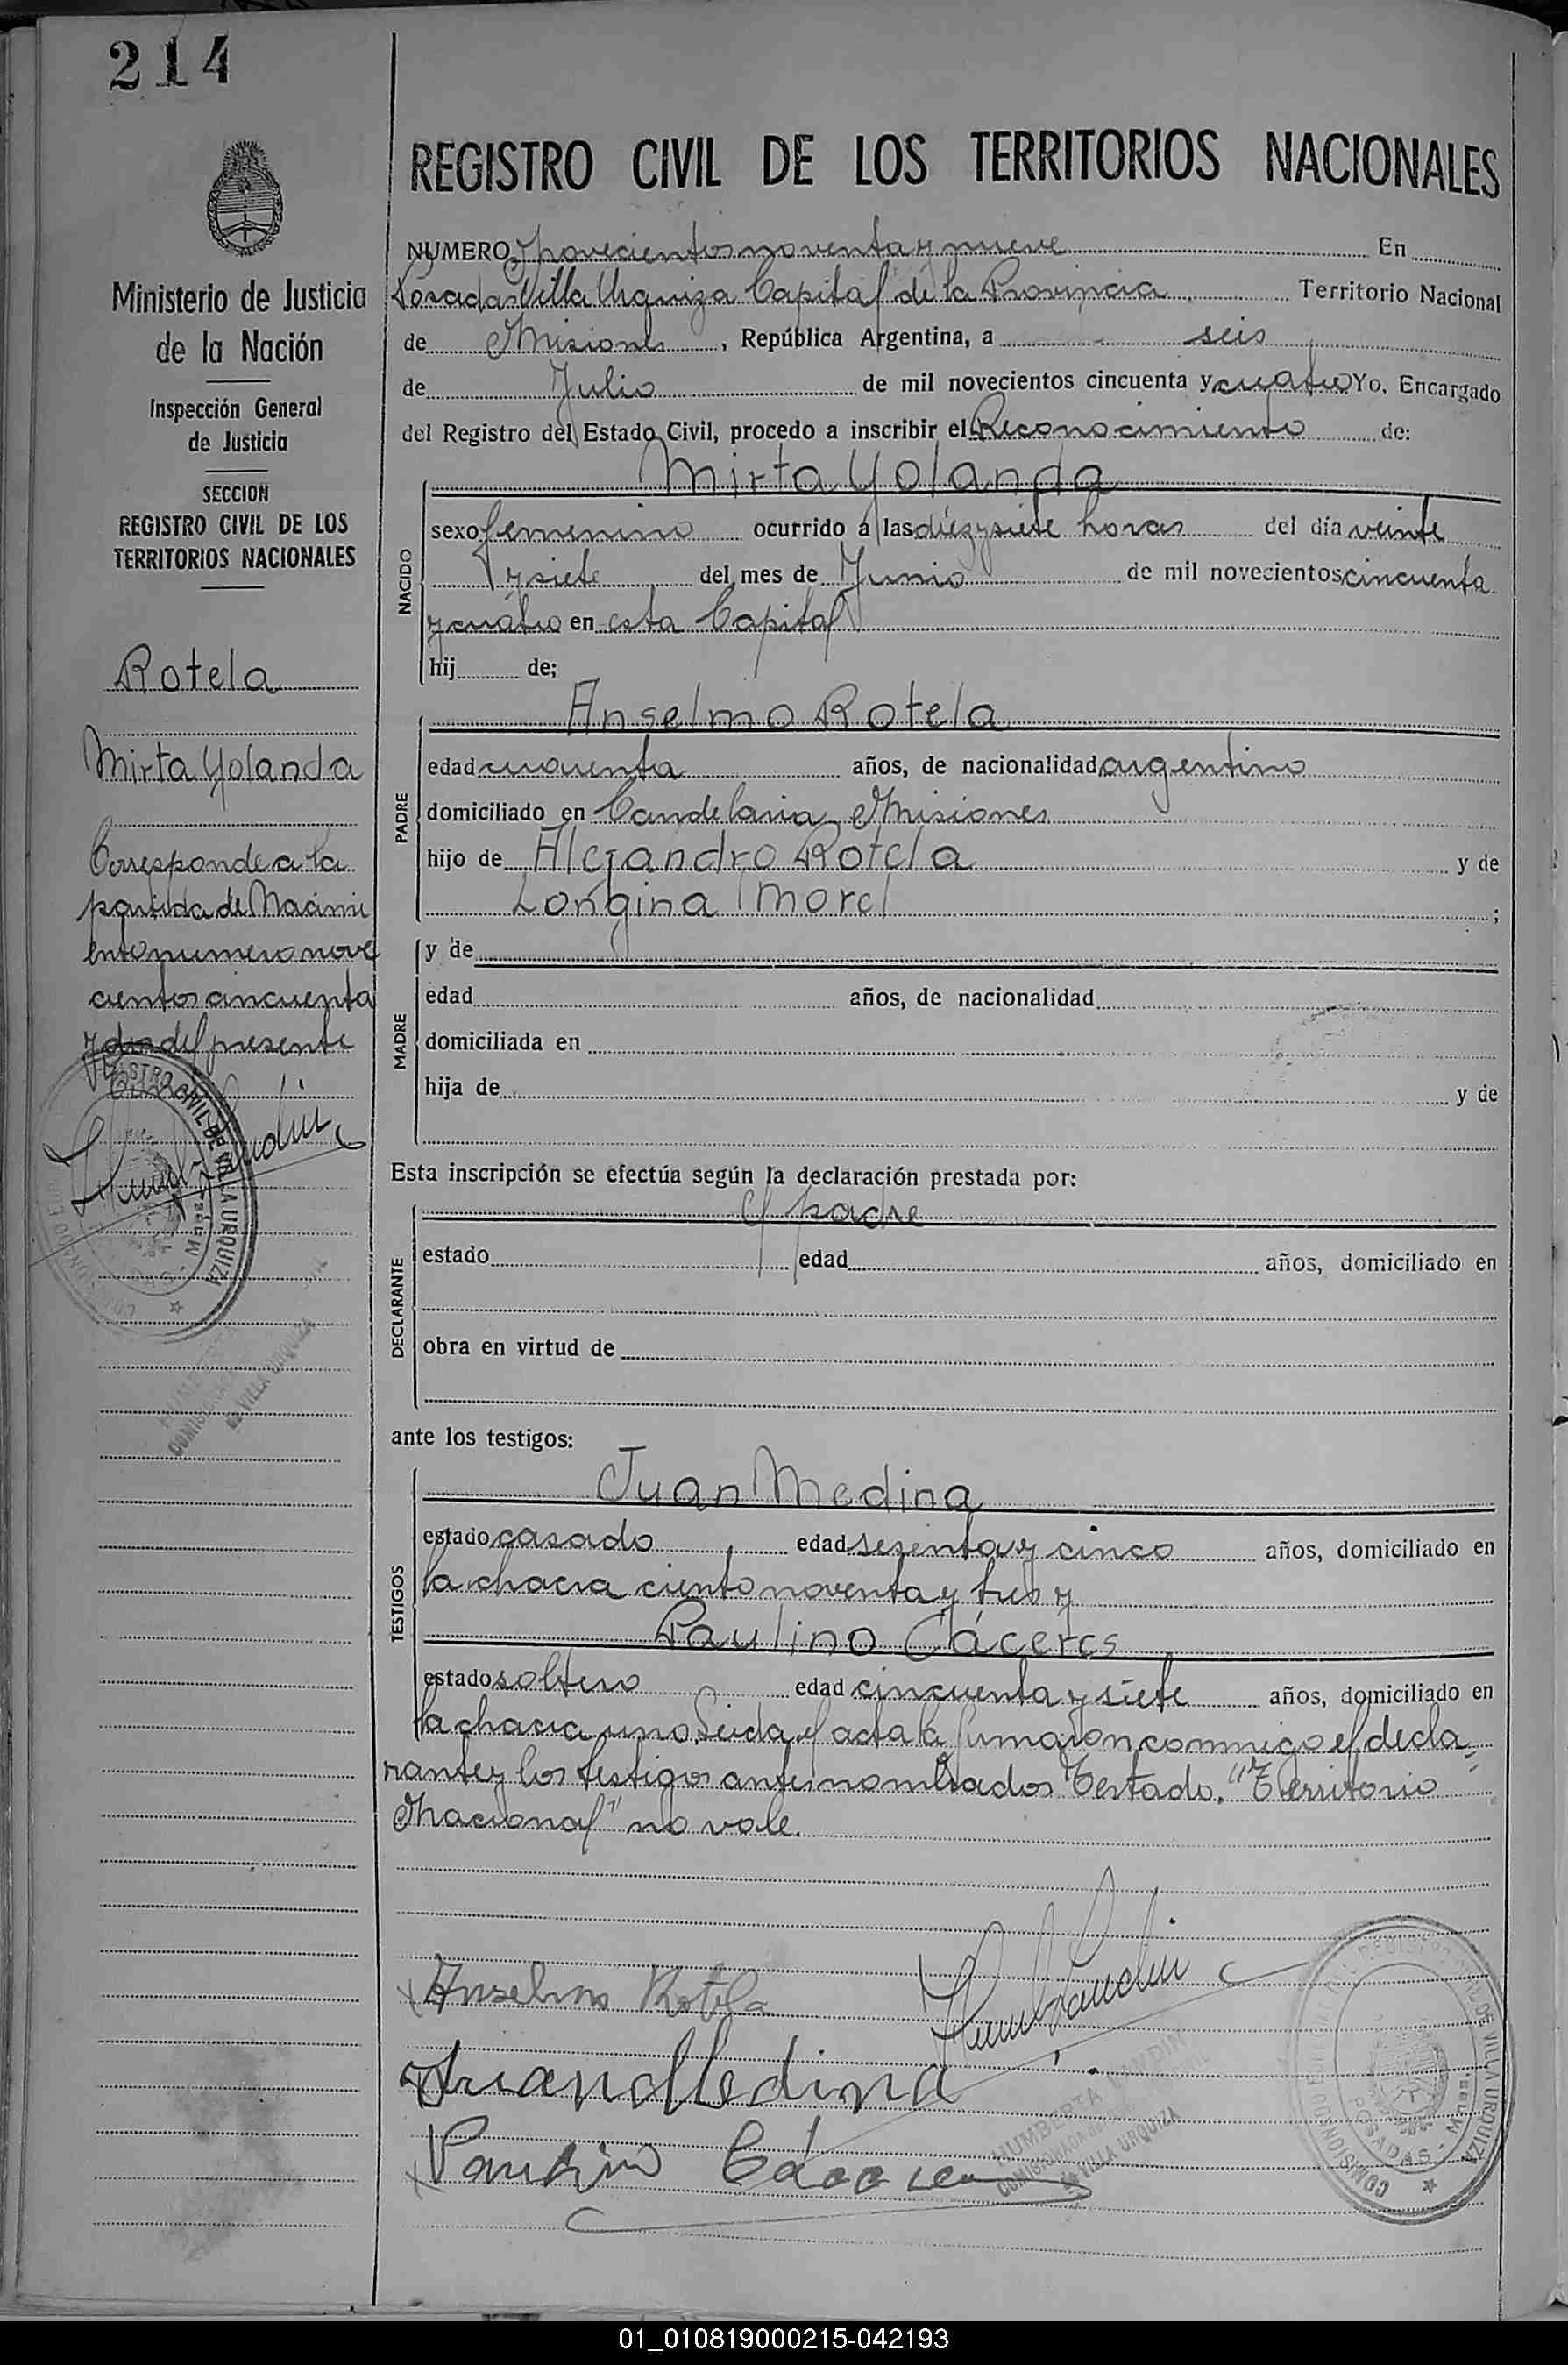 214
Ministerio de Justicia
de la Nación
Inspección General
de Justicia
SECCION
REGISTRO CIVIL DE LOS
TERRITORIOS NACIONALES
Rotela
Mirta Yolanda
Corresponde a la
partida de Nacimi
ento numero nove
cientos cincuenta
y dos del presente
REGISTRO CIVIL DE LOS TERRITORIOS NACIONALES
NUMERO novecientos noventa y nueve En
Posadas Villa Urquiza Capital de la Provincia Territorio Nacional
de Misiones, República Argentina, a seis
de Julio de mil novecientos cincuenta y cuatro Yo, Encargado
del Registro del Estado Civil, procedo a inscribir el Reconocimiento de:
Mirta Yolanda
NACIDO
sexo femenino ocurrido a las diez y siete horas del día veinte
y siete del mes de Junio de mil novecientos cincuenta
y cuatro en esta Capital
hij de;
Anselmo Rotela
PADRE
edad cuarenta años, de nacionalidad argentino
domiciliado en Candelaria Misiones
hijo de Alejandro Rotela y de
Longina Morel ;
MADRE
y de
edad años, de nacionalidad
domiciliada en
hija de y de
Esta inscripción se efectúa según la declaración prestada por:
el padre
DECLARANTE
estado edad años, domiciliado en
obra en virtud de
ante los testigos:
Juan Medina
TESTIGOS
estado casado edad sesenta y cinco años, domiciliado en
la chacra ciento noventa y tres y
Paulino Cáceres
estado soltero edad cincuenta y siete años, domiciliado en
la chacra uno. Leida el acta la firmaron conmigo el decla
rante y los testigos antes nombrados Testado. "Territorio
Nacional" no vale.
Anselmo Rotela
Juan Medina
Paulino Cáceres
COMISIONADA
de VILLA URQUIZA
POSADAS - Mnes.
01_010819000215-042193